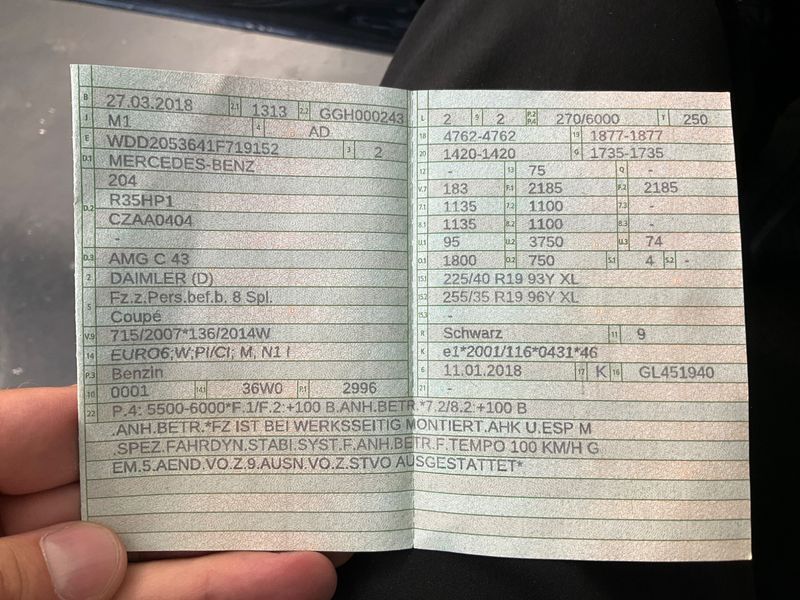 B 27.03.2018 2.1 1313 2.2 GGH000243
J M1 4 AD
E WDD2053641F719152 3 2
D.1 MERCEDES-BENZ
204
D.2 R35HP1
CZAA0404
-
D.3 AMG C 43
2 DAIMLER (D)
5 Fz.z.Pers.bef.b. 8 Spl.
Coupé
V.9 715/2007*136/2014W
14 EURO6;W;PI/CI; M, N1 I
P.3 Benzin
10 0001 14.1 36W0 P.1 2996
L 2 9 2 P.2 P.4 270/6000 T 250
18 4762-4762 19 1877-1877
20 1420-1420 G 1735-1735
12 - 13 75 Q -
V.7 183 F.1 2185 F.2 2185
7.1 1135 7.2 1100 7.3 -
8.1 1135 8.2 1100 8.3 -
U.1 95 U.2 3750 U.3 74
O.1 1800 O.2 750 S.1 4 S.2 -
15.1 225/40 R19 93Y XL
15.2 255/35 R19 96Y XL
15.3 -
R Schwarz 11 9
K e1*2001/116*0431*46
6 11.01.2018 17 K 16 GL451940
21 -
22 P.4: 5500-6000*F.1/F.2:+100 B.ANH.BETR.*7.2/8.2:+100 B
.ANH.BETR.*FZ IST BEI WERKSSEITIG MONTIERT.AHK U.ESP M
.SPEZ.FAHRDYN.STABI.SYST.F.ANH.BETR.F.TEMPO 100 KM/H G
EM.5.AEND.VO.Z.9.AUSN.VO.Z.STVO AUSGESTATTET*